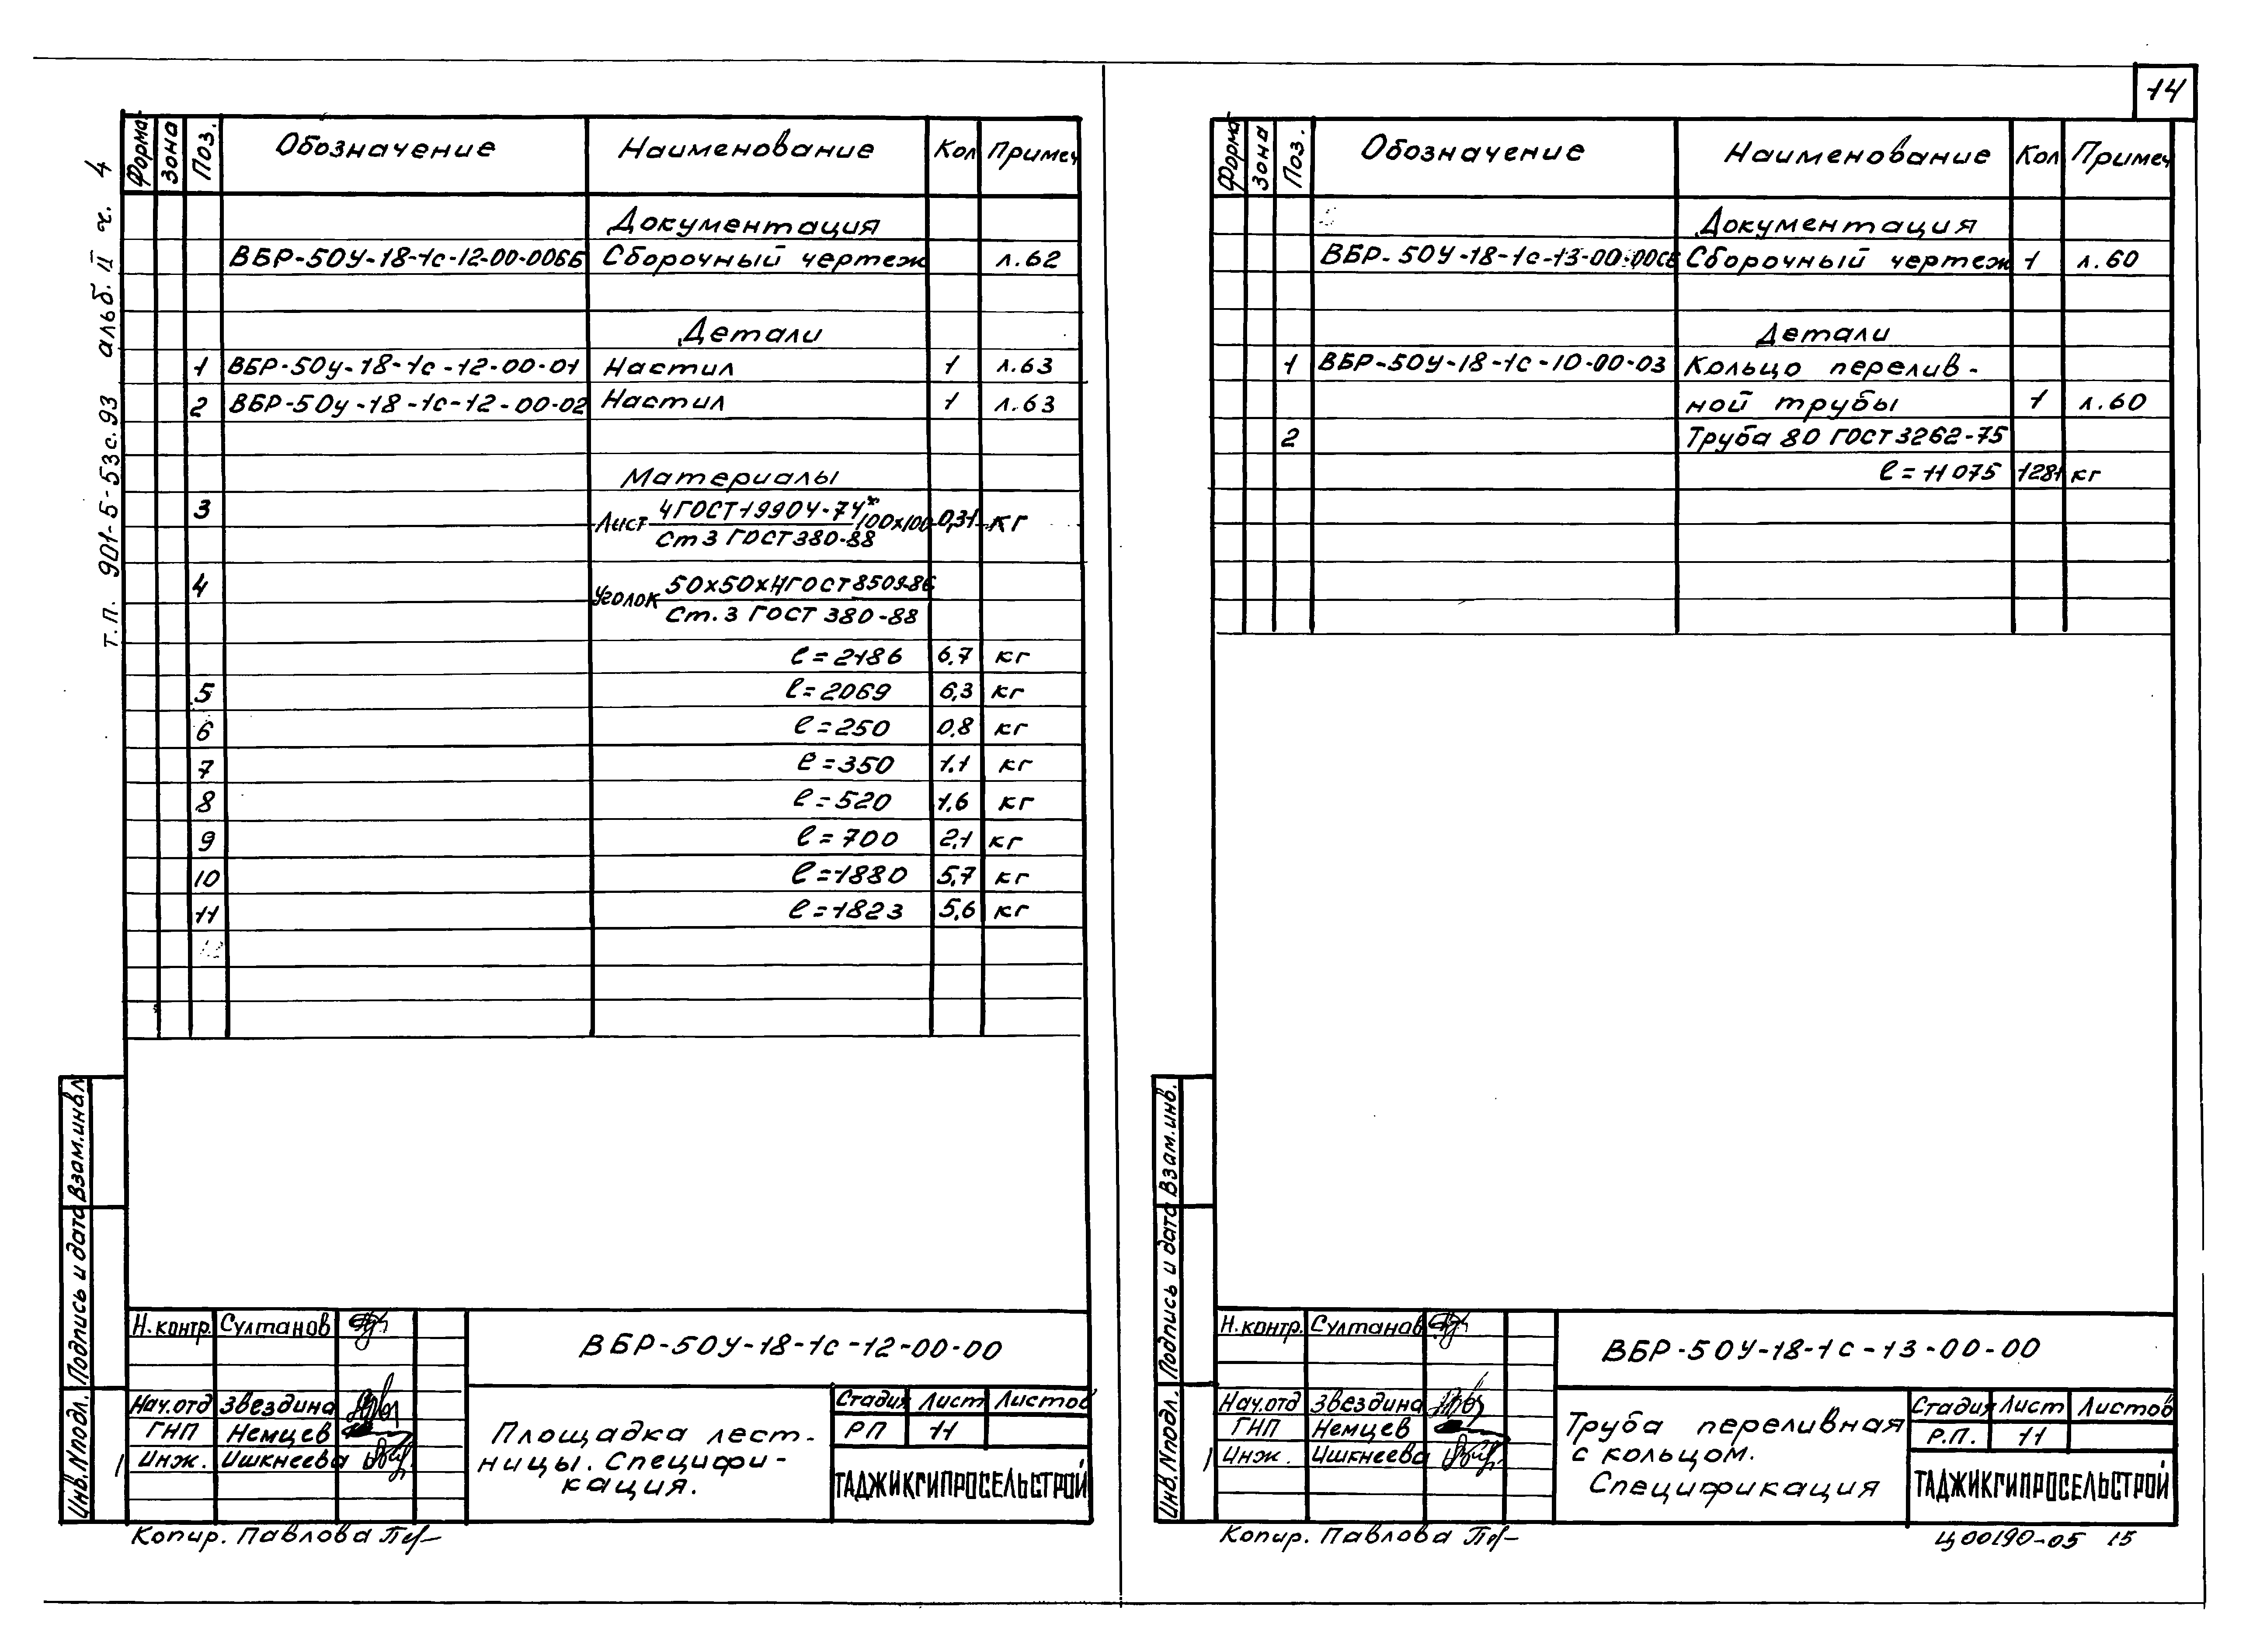 14
т.п. 901-5-53с.93 альб. II ч. 4
Формат Зона Поз. Обозначение Наименование Кол Примеч
Документация
ВБР-50У-18-1с-12-00-00СБ Сборочный чертеж л.62
Детали
1 ВБР-50у-18-1с-12-00-01 Настил 1 л.63
2 ВБР-50у-18-1с-12-00-02 Настил 1 л.63
Материалы
3 Лист 4 ГОСТ 19904-74* / Ст 3 ГОСТ 380-88 100х100 0,31 кг
4 Уголок 50х50х4 ГОСТ 8509-86 / Ст. 3 ГОСТ 380-88
ℓ=2186 6,7 кг
5 ℓ=2069 6,3 кг
6 ℓ=250 0,8 кг
7 ℓ=350 1.1 кг
8 ℓ=520 1,6 кг
9 ℓ=700 2,1 кг
10 ℓ=1880 5,7 кг
11 ℓ=1823 5,6 кг
Взам.инв.
Подпись и дата
Инв.Nподл.
Н.контр. Султанов
Нач.отд Звездина
ГНП Немцев
Инж. Ишкнеева
ВБР-50У-18-1с-12-00-00
Площадка лест-
ницы. Специфи-
кация.
Стадия Лист Листов
РП 11
ТАДЖИКГИПРОСЕЛЬСТРОЙ
Копир. Павлова
Формат Зона Поз. Обозначение Наименование Кол Примеч
Документация
ВБР-50У-18-1с-13-00-00СБ Сборочный чертеж 1 л.60
Детали
1 ВБР-50У-18-1с-10-00-03 Кольцо перелив-
ной трубы 1 л.60
2 Труба 80 ГОСТ 3262-75
ℓ=11075 1281 кг
Взам.инв.
Подпись и дата
Инв.Nподл.
Н.контр. Султанов
Нач.отд Звездина
ГНП Немцев
Инж. Ишкнеева
ВБР-50У-18-1с-13-00-00
Труба переливная
с кольцом.
Спецификация
Стадия Лист Листов
Р.П. 11
ТАДЖИКГИПРОСЕЛЬСТРОЙ
Копир. Павлова
Ц00190-05 15